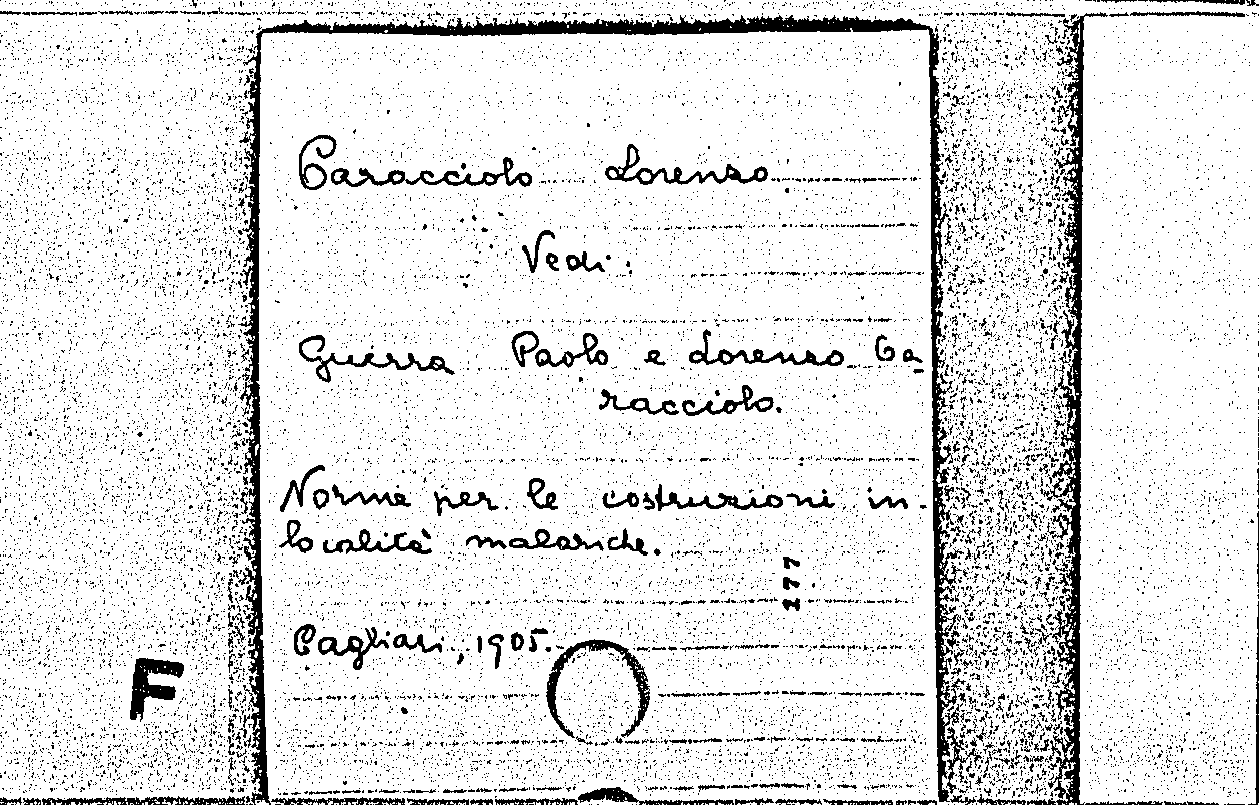 Caracciolo Lorenzo
Vedi:
Guerra Paolo e Lorenzo Ca-
racciolo.
Norme per le costruzioni in
località malariche.
177
Cagliari, 1905.
F